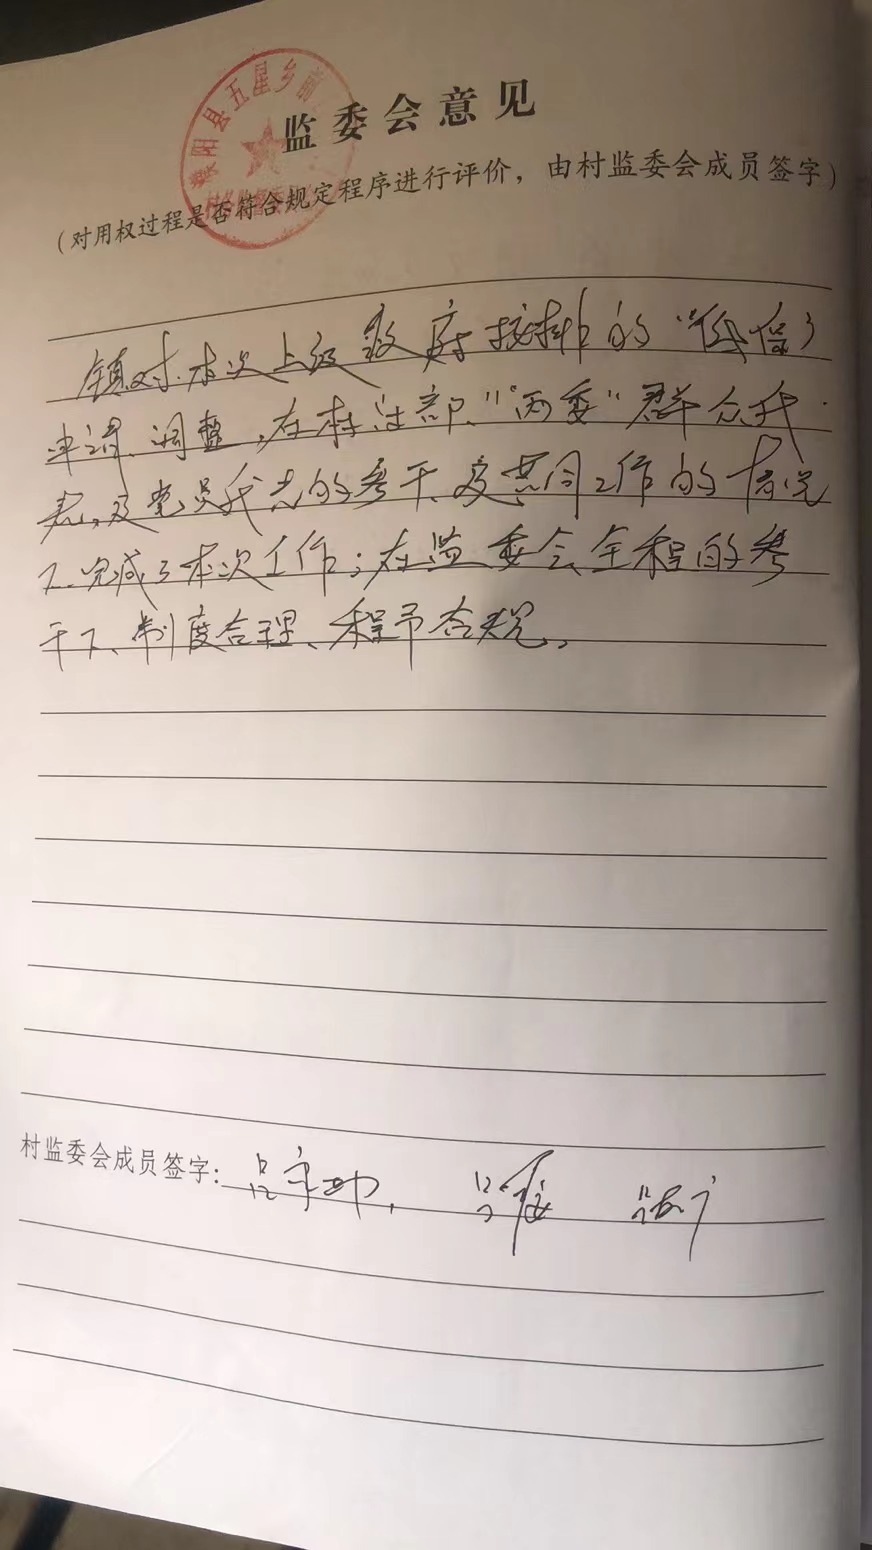 濮阳县五星乡前
监委会意见
(对用权过程是否符合规定程序进行评价，由村监委会成员签字)
镇对本次上级政府按排的“低保”
申请、调整,在村支部、“两委”群众代
表,及党员代表的参于、及共同工作的情况
下、完成了本次工作;在监委会全程的参
于下、制度合理、程予合规。
村监委会成员签字:
吕